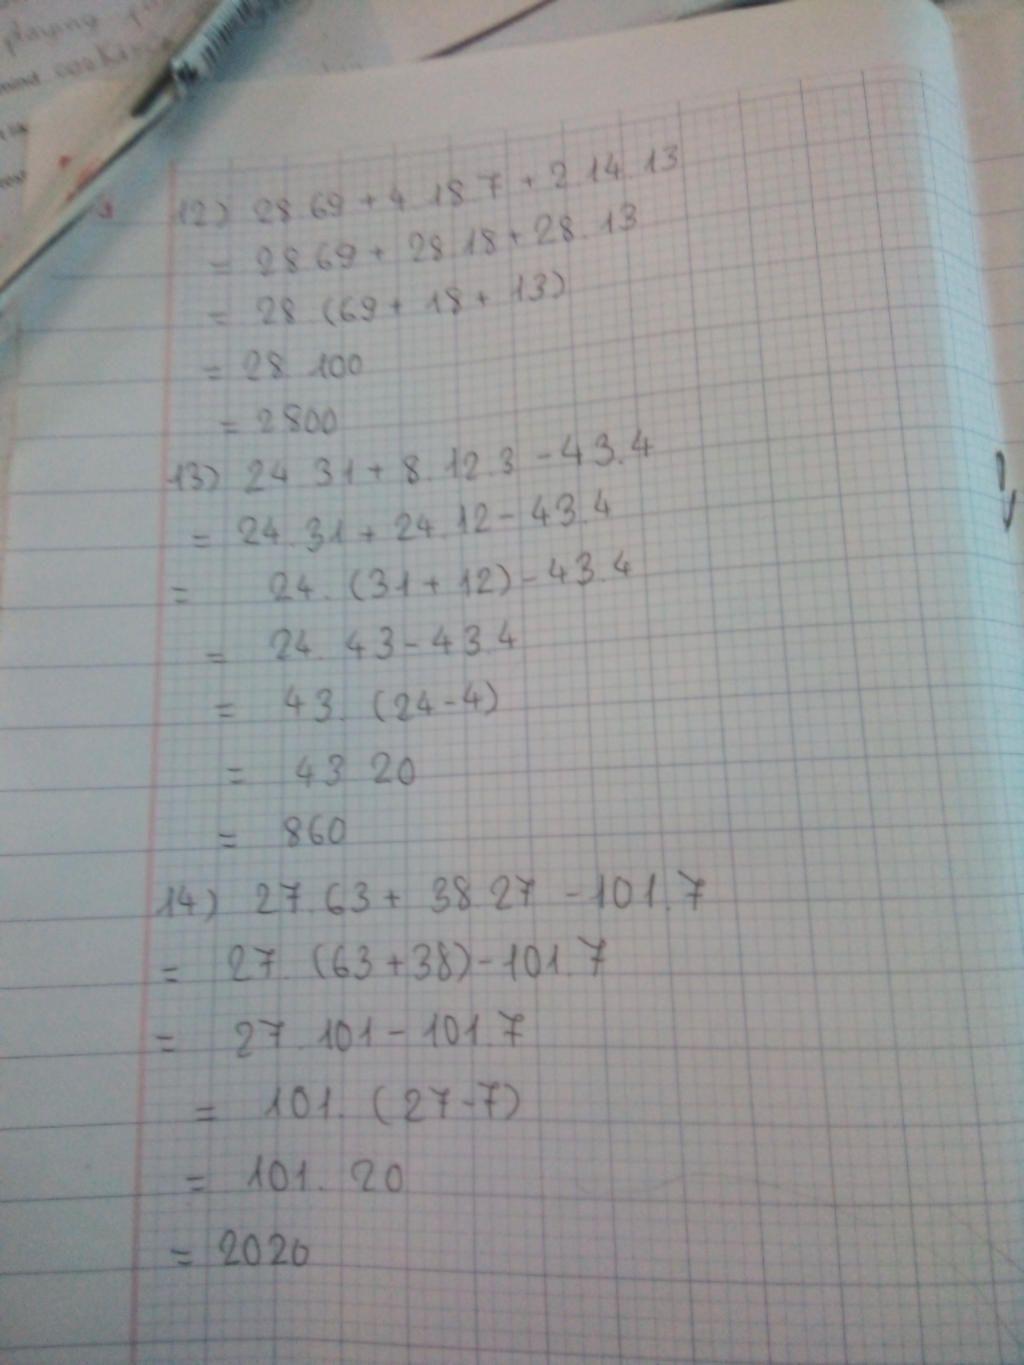 playing
12) 28.69 + 4.18.7 + 2.14.13
= 28.69 + 28.18 + 28.13
= 28.(69 + 18 + 13)
= 28.100
= 2800
13) 24.31 + 8.12.3 - 43.4
= 24.31 + 24.12 - 43.4
= 24.(31 + 12) - 43.4
= 24.43 - 43.4
= 43.(24-4)
= 43.20
= 860
14) 27.63 + 38.27 - 101.7
= 27.(63 + 38) - 101.7
= 27.101 - 101.7
= 101.(27-7)
= 101.20
= 2020